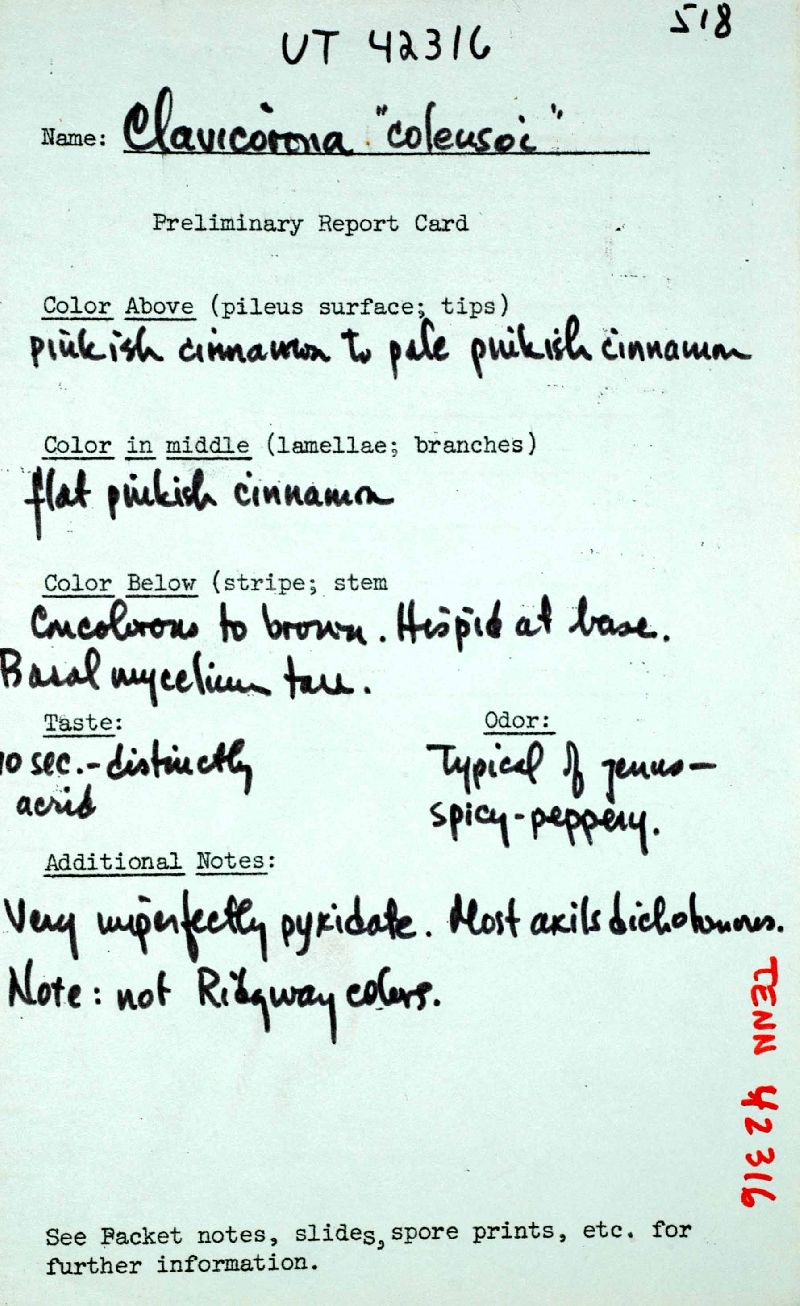 518
UT 42316
Name: Clavicorona "colensoi"
Preliminary Report Card
Color Above (pileus surface; tips)
pinkish cinnamon to pale pinkish cinnamon
Color in middle (lamellae; branches)
flat pinkish cinnamon
Color Below (stripe; stem
Concolorous to brown. Hispid at base.
Basal mycelium tan.
Taste: Odor:
10 sec.- distinctly Typical of genus—
acrid spicy-peppery.
Additional Notes:
Very imperfectly pyxidate. Most axils dichotomous.
Note: not Ridgway colors.
TENN 42316
See Packet notes, slides, spore prints, etc. for
further information.